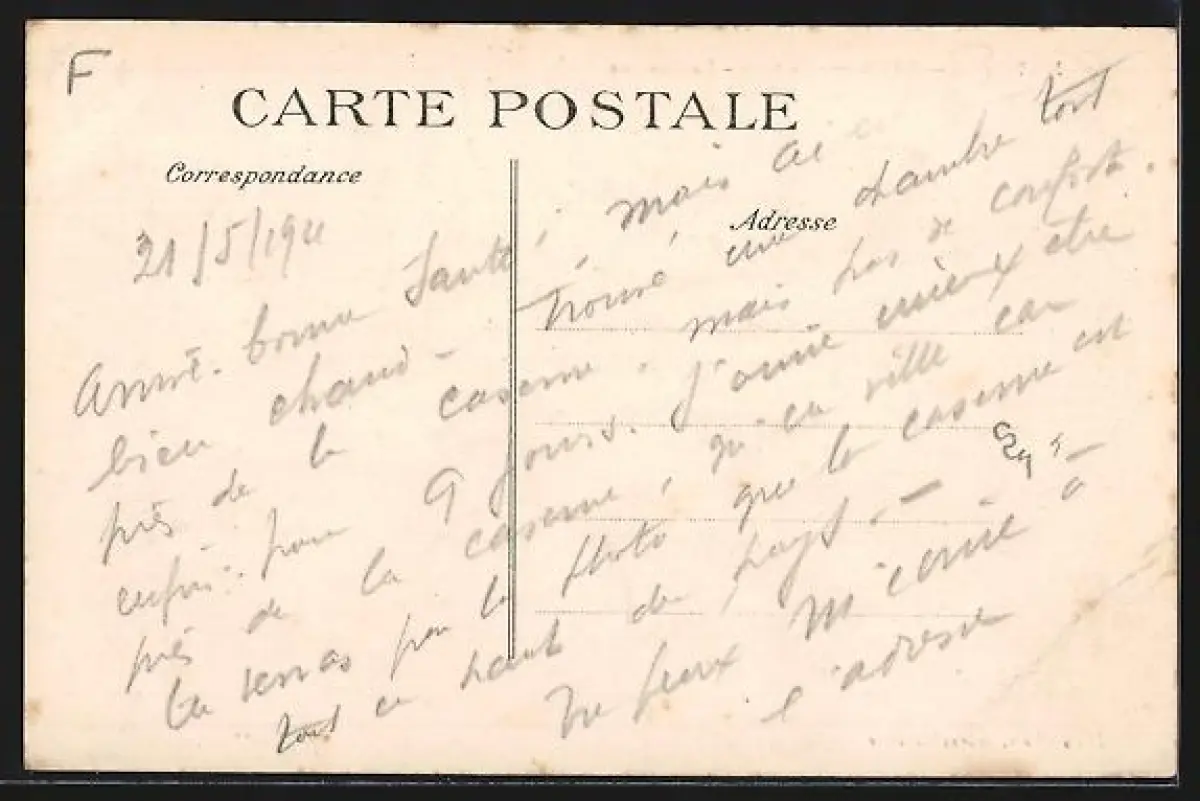 F
CARTE POSTALE
Correspondance
Adresse
21/5/1911
Arrivé. bonne Santé, mais ai
bien chaud - trouvé, une chambre tout
près de la caserne. mais pas de confort.
enfin. pour 9 jours. j'aime mieux être
près de la caserne, qu'en ville car
tu verras par la photo que la caserne est
tout en haut du pays. -
Tu peux m'écrire à
l'adresse